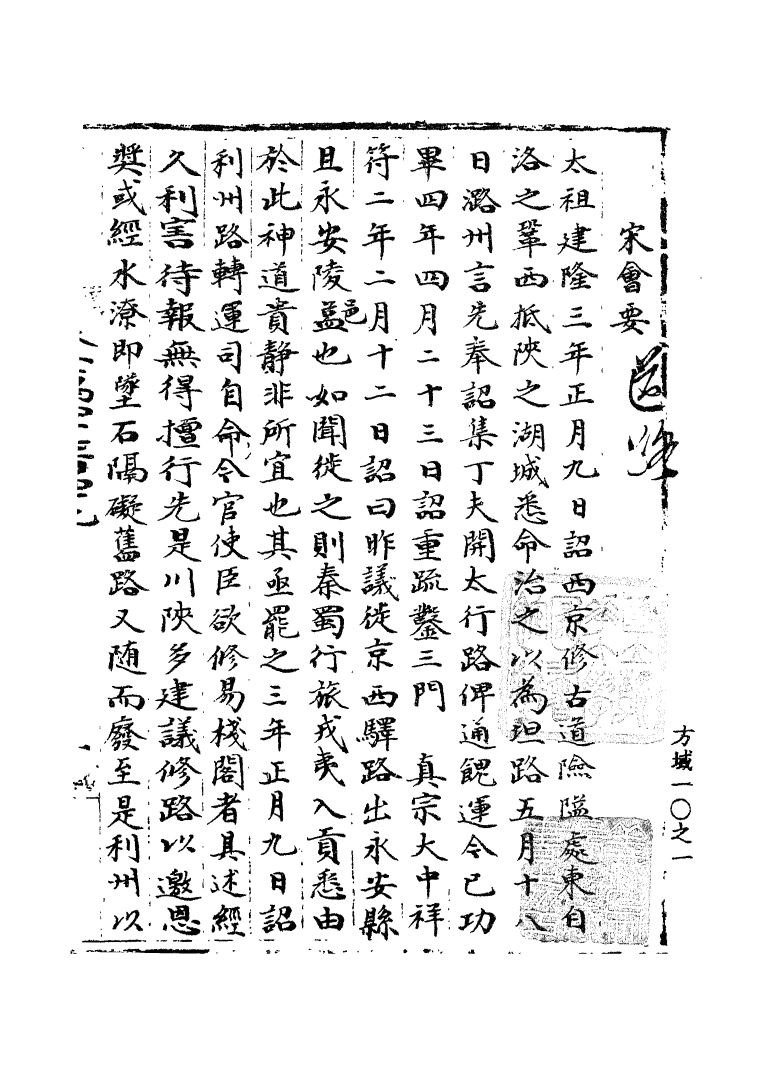 宋會要
道路
太祖建隆三年正月九日詔西京修古道險隘處東自
洛之鞏西抵陝之湖城悉命治之以為坦路五月十八
日潞州言先奉詔集丁夫開太行路俾通餽運令已功
畢四年四月二十三日詔重疏鑿三門　真宗大中祥
符二年二月十二日詔曰昨議徙京西驛路出永安縣
且永安陵邑也如聞徙之則秦蜀行旅戎夷入貢悉由
於此神道貴靜非所宜也其亟罷之三年正月九日詔
利州路轉運司自命令官使臣欲修易棧閣者具述經
久利害待報無得擅行先是川陝多建議修路以邀恩
獎或經水潦即墜石隔礙舊路又隨而廢至是利州以
方域一〇之一